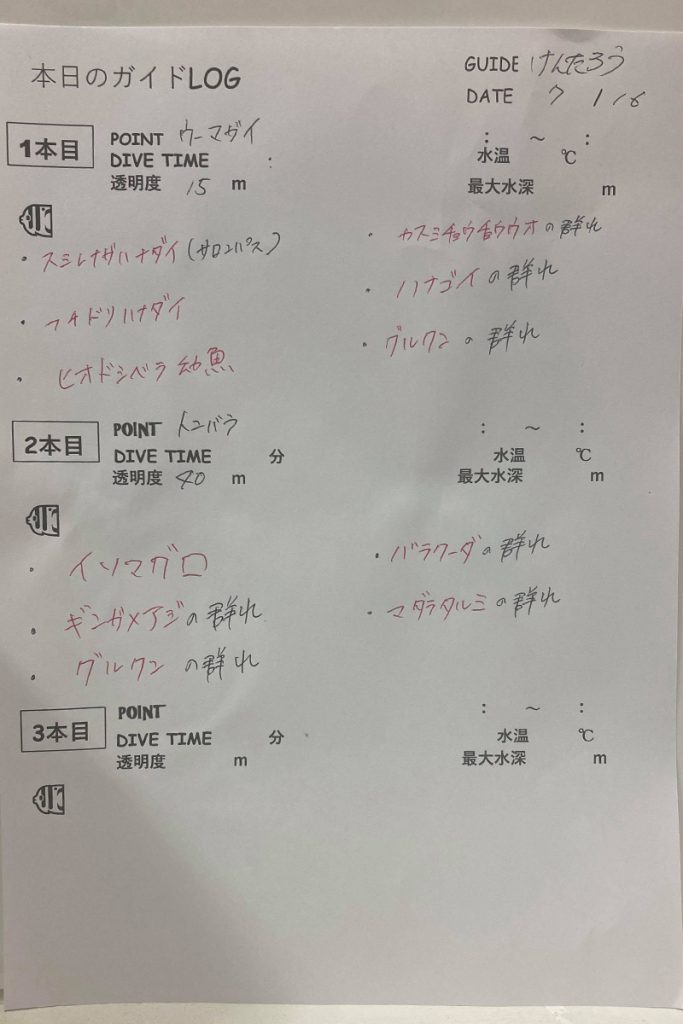 本日のガイドLOG
GUIDE けんたろう
DATE 7 / 16
1本目
POINT ウーマガイ
: ～ :
DIVE TIME :
水温 ℃
透明度 15 m
最大水深 m
・スミレナガハナダイ(サロンパス)
・カスミチョウチョウウオの群れ
・フチドリハナダイ
・ハナゴイの群れ
・ヒオドシベラ 幼魚
・グルクンの群れ
2本目
POINT トンバラ
: ～ :
DIVE TIME 分
水温 ℃
透明度 40 m
最大水深 m
・イソマグロ
・バラクーダの群れ
・ギンガメアジの群れ
・マダラタルミの群れ
・グルクンの群れ
3本目
POINT
: ～ :
DIVE TIME 分
水温 ℃
透明度 m
最大水深 m